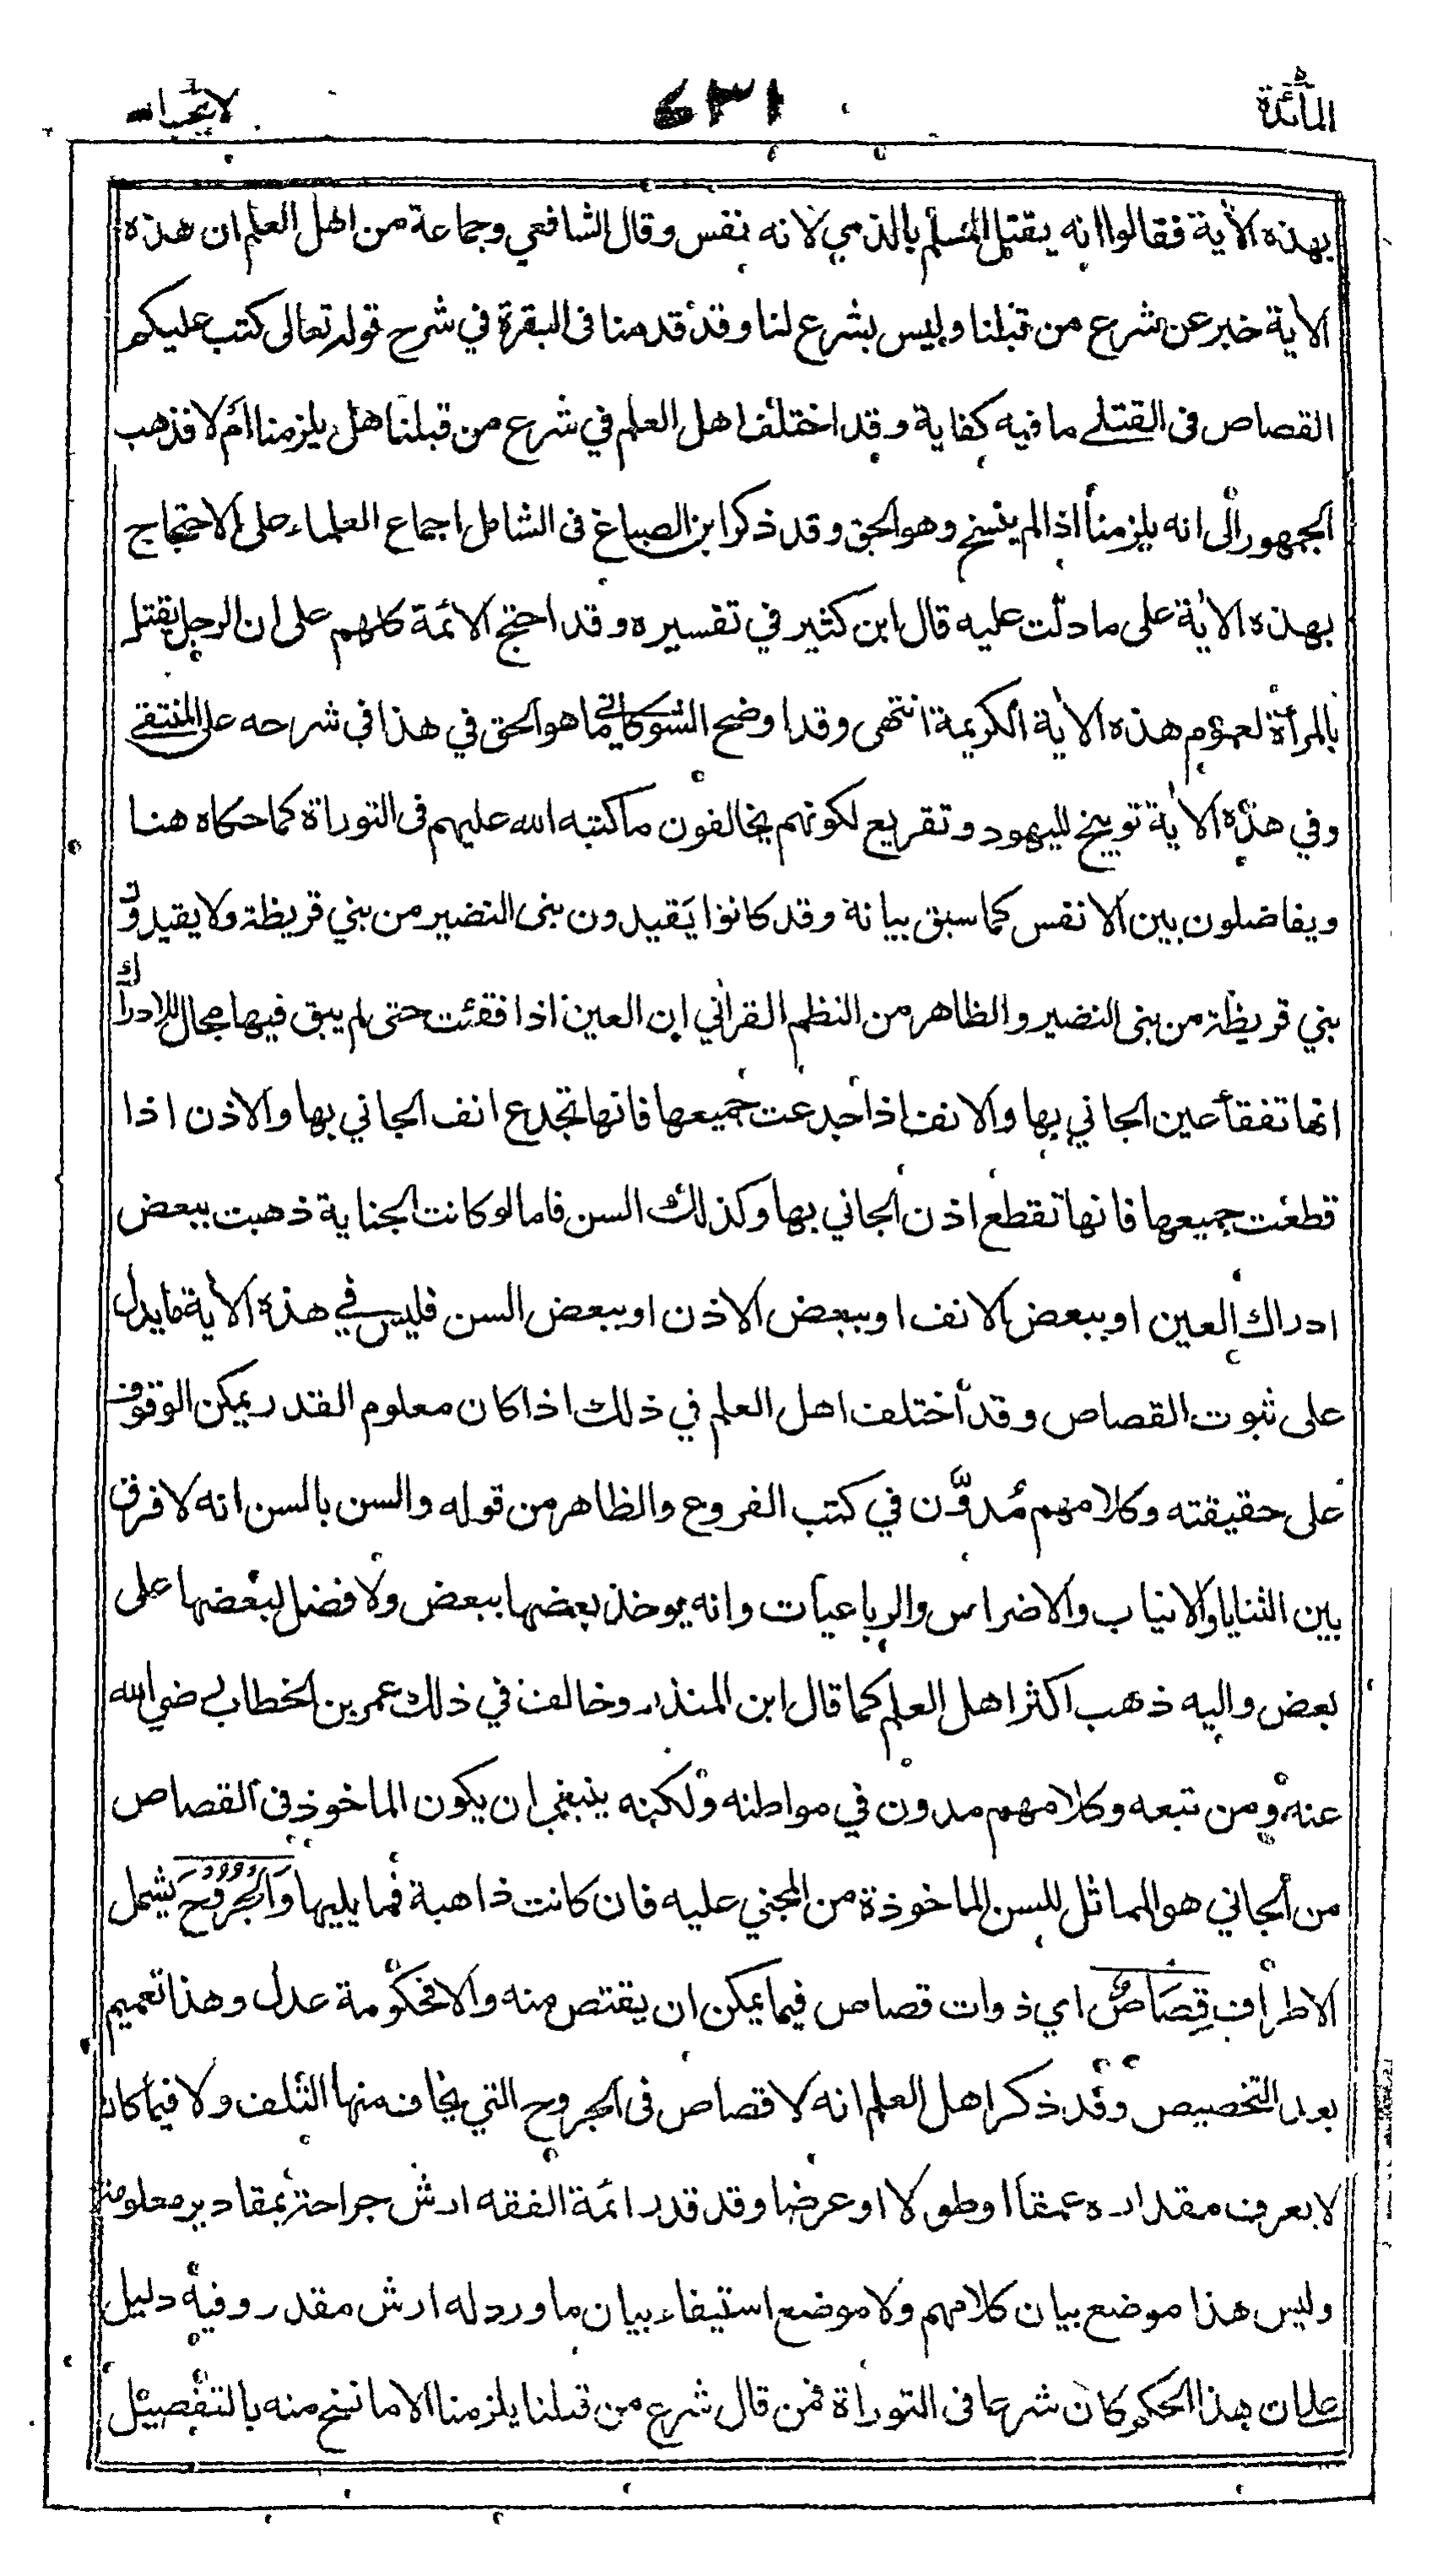 المآئدة ٥
٦٣١
لا يحب الله ٦
بهذه الأية فقالوا انه يقتل المسلم بالذمي لانه نفس وقال الشافعي وجماعة من اهل العلم ان هذه
الاية خبر عن شرع من قبلنا وليس بشرع لنا وقد قدمنا فى البقرة في شرح قوله تعالى كتب عليكم
القصاص فى القتلے ما فيه كفاية وقد اختلف اهل العلم في شرع من قبلنا هل يلزمنا أم لا فذهب
الجمهور الى انه يلزمنا اذا لم ينسخ وهو الحق وقد ذكر ابن الصباغ فى الشامل اجماع العلماء على الاحتجاج
بهذه الاية على ما دلّت عليه قال ابن كثير في تفسيره وقد احتج الائمة كلهم على ان الرجل يقتل
بالمرأة لعموم هذه الاية الكريمة انتهى وقد اوضح الشوكاني ما هو الحق في هذا في شرحه على المنتقے
وفي هذه الاية توبيخ لليهود وتقريع لكونهم يخالفون ما كتبه الله عليهم فى التوراة كما حكاه هنا
ويفاضلون بين الانفس كما سبق بيانه وقد كانوا يَقيدون بنى النضير من بني قريظة ولا يقيدون
بني قريظة من بنى النضير والظاهر من النظم القرأني ان العين اذا فقئت حتى لم يبق فيها مجال للادراك
انها تفقأ عين الجاني بها والانف اذا جدعت جميعها فانها تجدع انف الجاني بها والاذن اذا
قطعت جميعها فانها تقطع اذن الجاني بها وكذلك السن فاما لو كانت الجناية ذهبت ببعض
ادراك العين او ببعض الانف او ببعض الاذن او ببعض السن فليس في هذه الأية ما يدل
على ثبوت القصاص وقد أختلف اهل العلم في ذلك اذا كان معلوم القدر يمكن الوقوف
على حقيقته وكلامهم مُدوَّن في كتب الفروع والظاهر من قوله والسن بالسن انه لا فرق
بين الثنايا والانياب والاضراس والرباعيات وانه يوخذ بعضها ببعض ولا فضل لبعضها على
بعض واليه ذهب اكثر اهل العلم كما قال ابن المنذر وخالف في ذلك عمر بن الخطاب رضي الله
عنه ومن تبعه وكلامهم مدون في مواطنه ولكنه ينبغي ان يكون الماخوذ فى القصاص
من الجاني هو المماثل للسن الماخوذة من المجني عليه فان كانت ذاهبة فما يليها وَالْجُرُوْحَ يشمل
الاطراف قِصَاصٌ اي ذوات قصاص فيما يمكن ان يقتص منه والا فحكومة عدل وهذا تعميم
بعد التخصيص وقد ذكر اهل العلم انه لا قصاص فى الجروح التي يخاف منها التلف ولا فيما كان
لا يعرف مقداره عمقا او طولا او عرضا وقد قدر ائمة الفقه ارش جراحة بمقادير معلومة
وليس هذا موضع بيان كلامهم ولا موضع استيفاء بيان ما ورد له ارش مقدر وفيه دليل
على ان هذا الحكم كان شرعا فى التوراة فمن قال شرع من قبلنا يلزمنا الا ما نسخ منه بالتفصيل